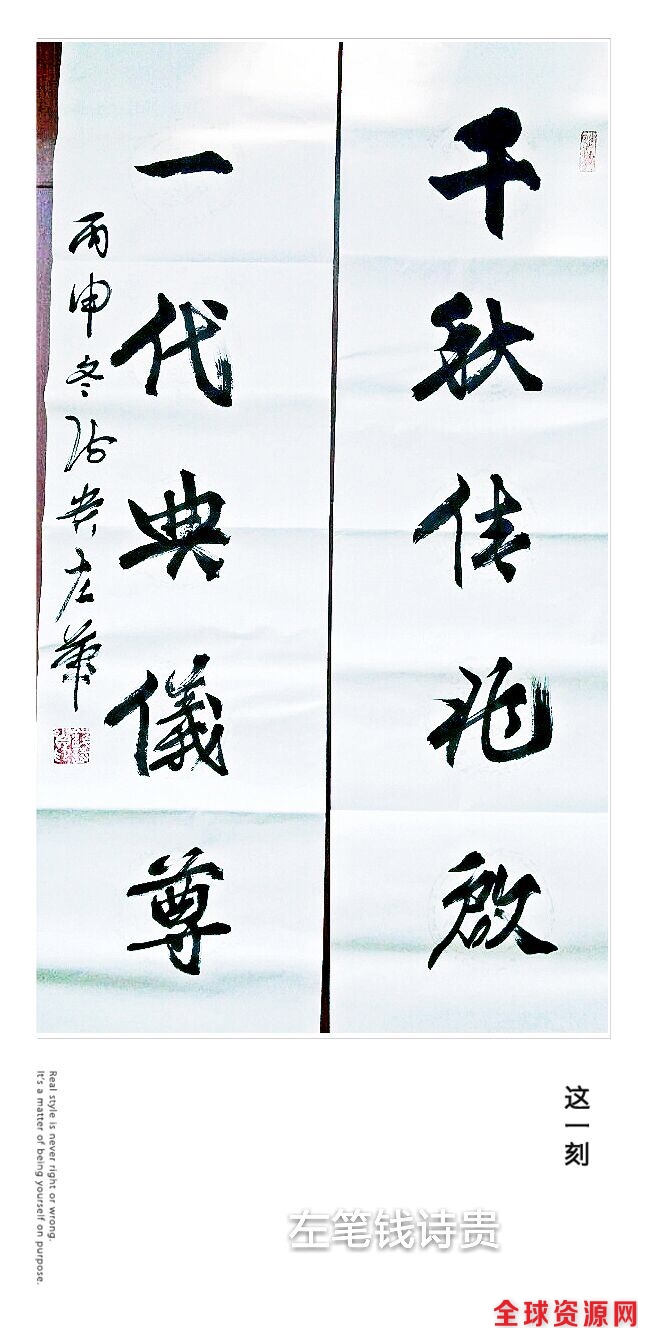 千秋佳兆啟
一代典儀尊
丙申冬詩貴左筆
这一刻
Real style is never right or wrong.
It's a matter of being yourself on purpose.
左笔钱诗贵
全球资源网